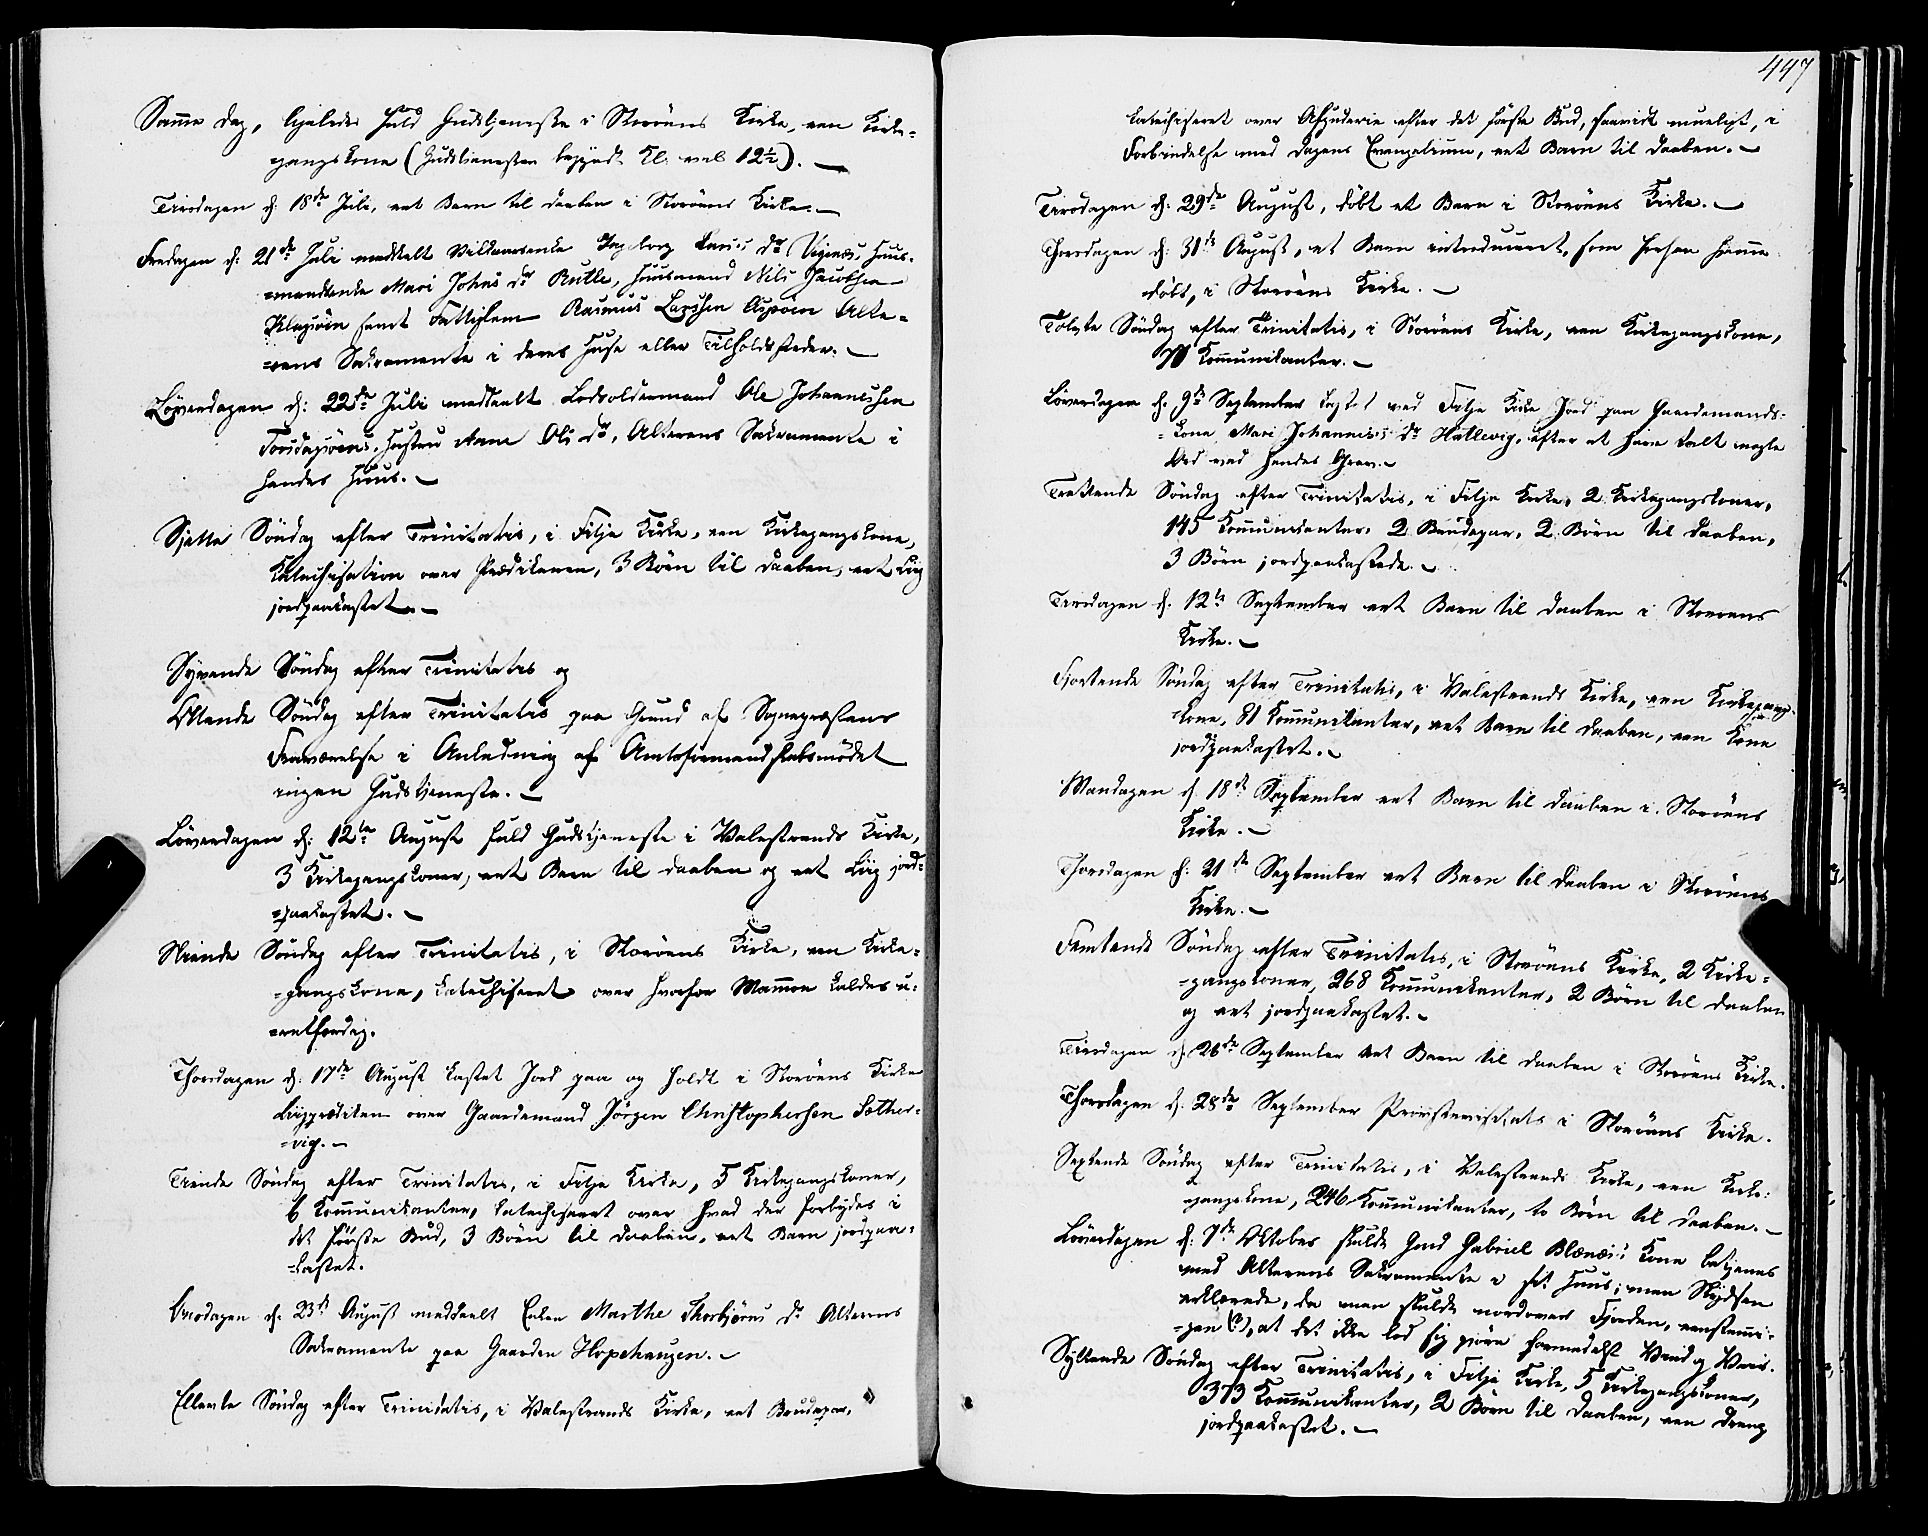 Samme Dag, ligeledes holdt Gudstjeneste i Storöens Kirke, een Kirke-
gangskone (Gudstjenesten begyndt Kl. vel 12½). –
Tirsdagen d: 18de Juli, eet Barn til Daaben i Storöens Kirke. –
Fredagen d: 21de Juli meddeelt Vilkaarsenke Ingeborg Lars Dr Vigenes, Huus-
=mandsenke Mari Johns Dr Rutle, Huusmand Nils Jacobsen
samt Fattiglem Rasmus Larssen Alte-
=rens Sakramente i deres Huse eller Tilholdssteder. –
Löverdagen d: 22de Juli meddeelt Ole Johannessen
Hustru Anne Ols Dr, Alterens Sakramente i
hendes Huus. –
Sjette Söndag efter Trinitatis, i Fitje Kirke, een Kirkegangskone,
Katechisation over Prædikenen, 3 Börn til Daaben, eet Liig
jordpaakastet. –
Syvende Söndag efter Trinitatis og
Ottende Söndag efter Trinitatis paa Grund af Sognepræstens
Fraværelse i Anledning af Amtsformandskabsmödet
ingen Gudstjeneste. –
Löverdagen d: 12te August holdt Gudstjeneste i Valestrands Kirke,
3 Kirkegangskoner, eet Barn til Daaben og eet Liig jord-
=paakastet. –
Niende Söndag efter Trinitatis, i Storöens Kirke, een Kirke-
=gangskone, katechiseret over hvorfor Mammon kaldes u-
=retfærdig.
Thorsdagen d: 17de August kastet Jord paa og holdt i Storöens Kirke
Liigprædiken over Gaardemand Jörgen Christophersen Sæther-
=vig. –
Tiende Söndag efter Trinitatis, i Fitje Kirke, 5 Kirkegangskoner,
6 Kommunikanter, katechiseret over hvad der forbydes i
det förste Bud, 3 Börn til Daaben, eet Barn jordpaa-
=kastet.
Onsdagen d: 23de August meddeelt Enken Marthe Thorbjörns Dr Alterens
Sakramente paa Gaarden Hopehaugen. –
Ellevte Söndag efter Trinitatis, i Valestrands Kirke, eet Brudepar,
447
katechiseret over Afguderie efter det förste Bud, saavidt mueligt, i
Forbindelse med Dagens Evangelium, eet Barn til Daaben. –
Tirsdagen d: 29de August, döbt et Barn i Storöens Kirke. –
Thorsdagen d: 31te August, et Barn introduceret, som forhen hjemme-
döbt, i Storöens Kirke. –
Tolvte Söndag efter Trinitatis, i Storöens Kirke, een Kirkegangskone,
Kommunikanter. –
Löverdagen d: 9de September kastet ved Fitje Kirke Jord paa Gaardemands-
=kone Mari Johannes Dr Hatlevig, efter at have talt nogle
Ord ved hendes Grav. –
Trettende Söndag efter Trinitatis, i Fitje Kirke, 2 Kirkegangskoner,
145 Kommunikanter, 2 Brudepar, 2 Börn til Daaben,
3 Börn jordpaakastede. –
Tirsdagen d: 12te September eet Barn til Daaben i Storöens
Kirke. –
Fjortende Söndag efter Trinitatis, i Valestrands Kirke, een Kirkegang-
=skone, 81 Kommunikanter, eet Barn til Daaben, een Kone
jordpaakastet. –
Mandagen d: 18de September eet Barn til Daaben i Storöens
Kirke. –
Thorsdagen d: 21de September eet Barn til Daaben i Storöens
Kirke. –
Femtende Söndag efter Trinitatis, i Storöens Kirke, 2 Kirke-
=gangskoner, 268 Kommunikanter, 2 Börn til Daaben
og eet jordpaakastet. –
Tirsdagen d: 26de September eet Barn til Daaben i Storöens Kirke.
Thorsdagen d: 28de September Provstevisitats i Storöens Kirke.
Sextende Söndag efter Trinitatis, i Valestrands Kirke, een Kirke-
gangskone, 246 Kommunikanter, to Börn til Daaben. –
Löverdagen d: 7de Oktober skulde Gmd Gabriel Blænæs's Kone betjenes
med Alterens Sakramente i sit Huus; men Skydsen
erklærede, da man skulde nordover Fjorden, eenstemmi-
=gen (?), at det ikke lod sig gjöre formedelst Vind og Veir.
Syttende Söndag efter Trinitatis, i Fitje Kirke, 5 Kirkegangskoner,
373 Kommunikanter, 2 Börn til Daaben, een Dreng
jordpaakastet. –